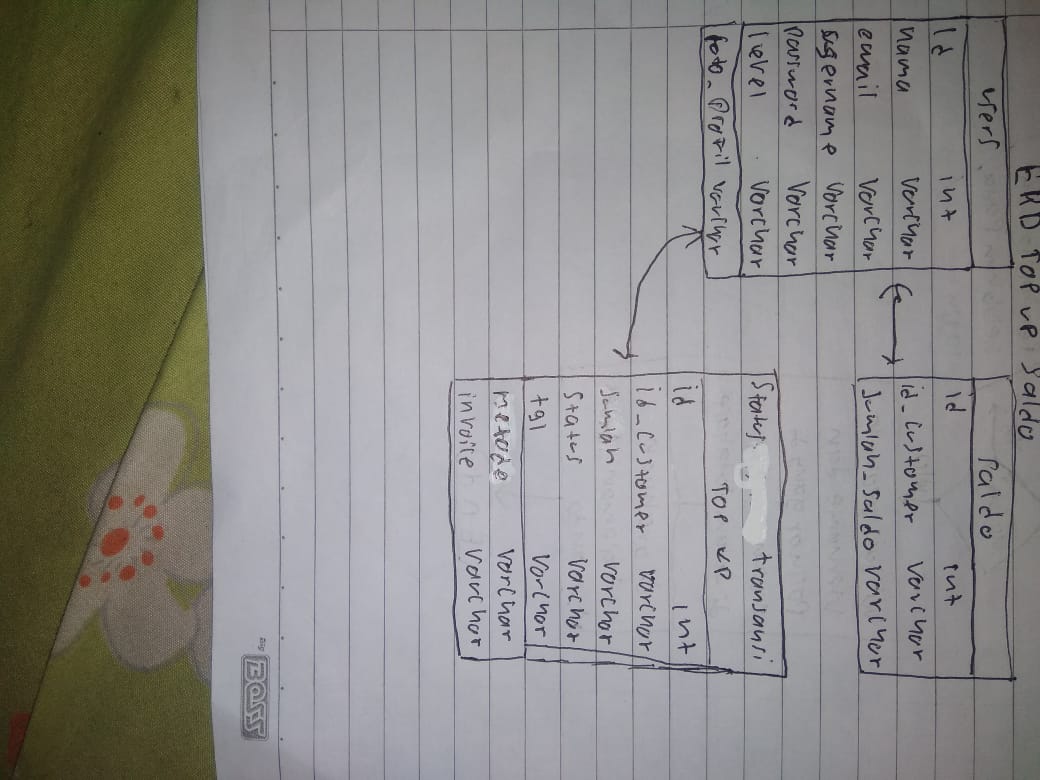 ERD TOP UP Saldo
users
Id int
nama varchar
email varchar
username varchar
password varchar
level varchar
foto_Profil varchar
saldo
id int
id_customer varchar
Jumlah_saldo varchar
Status transaksi
TOP UP
id int
id_customer varchar
Jumlah varchar
Status varchar
tgl varchar
metode varchar
invoice varchar
Big BOSS